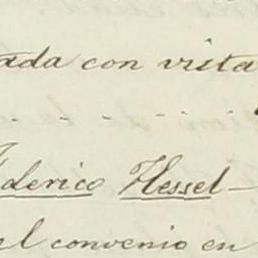 ada con vista
Federico Hessel -
el convenio en